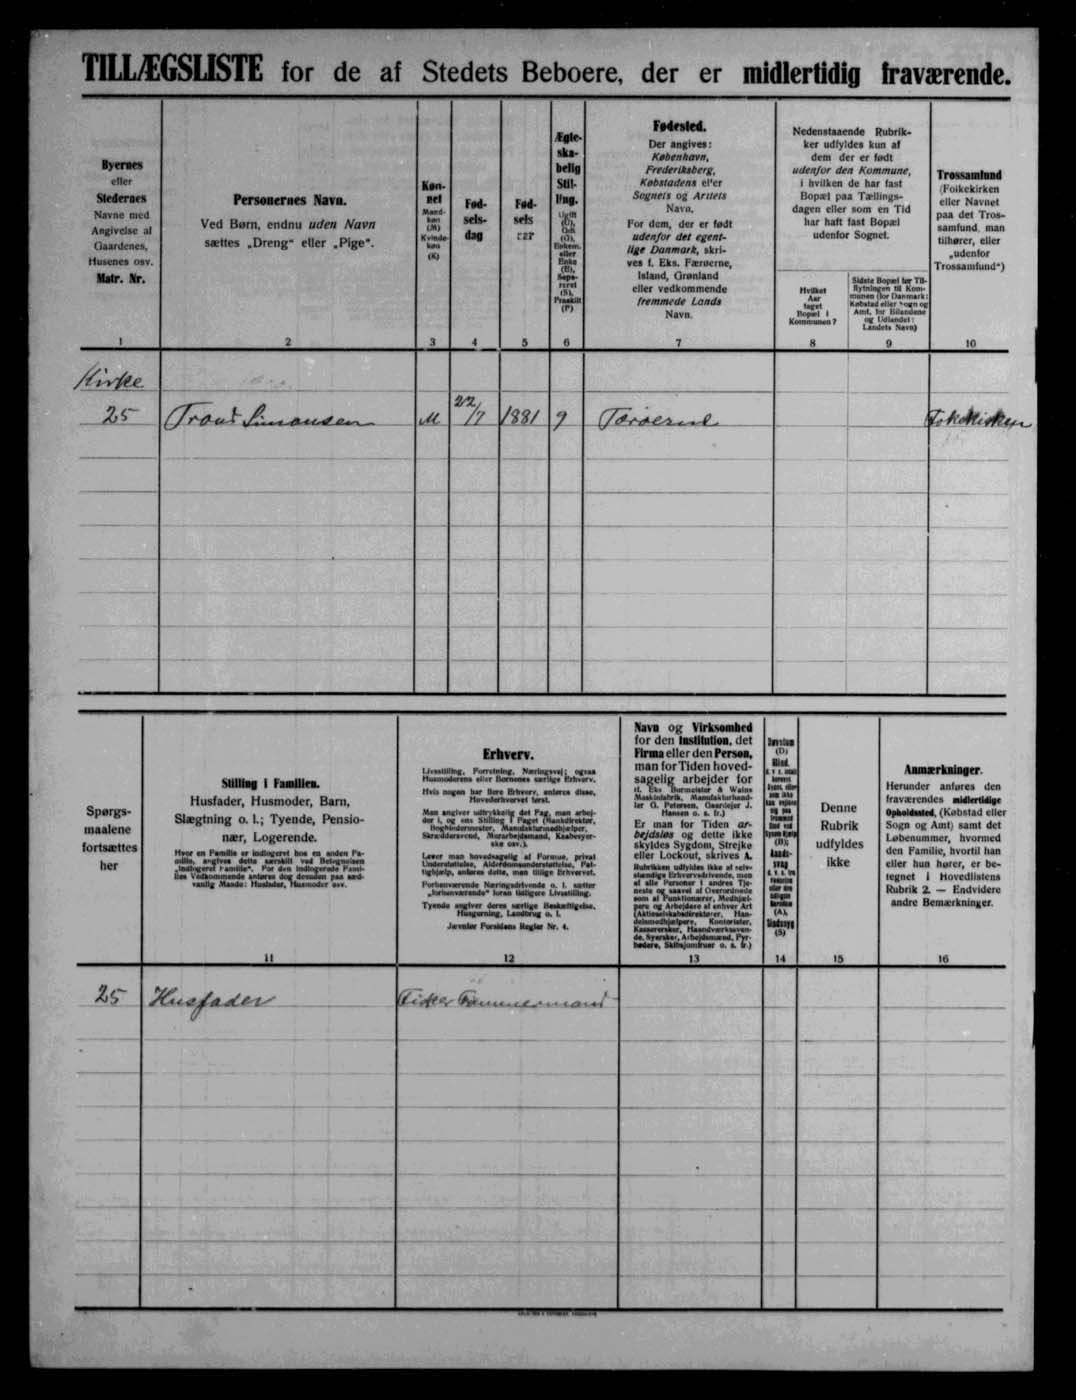 TILLÆGSLISTE for de af Stedets Beboere, der er midlertidig fraværende.
Byernes
eller
Stedernes
Navne med
Angivelse af
Gaardenes,
Husenes osv.
Matr. Nr.
1
Personernes Navn.
Ved Børn, endnu uden Navn
sættes „Dreng“ eller „Pige“.
2
Køn-
net
Mand-
køn
(M)
Kvinde-
køn
(K)
3
Fød-
sels-
dag
4
Fød-
sels
aar
5
Ægte-
ska-
belig
Stil-
ling.
Ugift
(U),
Gift
(G),
Enkem.
eller
Enke
(E),
Sepa-
reret
(S),
Fraskilt
(F)
6
Fødested.
Der angives:
København,
Frederiksberg,
Købstadens eller
Sognets og Amtets
Navn.
For dem, der er født
udenfor det egent-
lige Danmark, skri-
ves f. Eks. Færøerne,
Island, Grønland
eller vedkommende
fremmede Lands
Navn.
7
Nedenstaaende Rubrik-
ker udfyldes kun af
dem der er født
udenfor den Kommune,
i hvilken de har fast
Bopæl paa Tællings-
dagen eller som en Tid
har haft fast Bopæl
udenfor Sognet.
Hvilket
Aar
taget
Bopæl i
Kommunen?
8
Sidste Bopæl før Til-
flytningen til Kom-
munen (for Danmark:
Købstad eller Sogn og
Amt, for Bilandene
og Udlandet:
Landets Navn)
9
Trossamfund
(Folkekirken
eller Navnet
paa det Tros-
samfund, man
tilhører, eller
„udenfor
Trossamfund“)
10
Kirke
25 Simonsen M 22/7 1881 g Færøerne
Spørgs-
maalene
fortsættes
her
Stilling i Familien.
Husfader, Husmoder, Barn,
Slægtning o. l.; Tyende, Pensio-
nær, Logerende.
Hvor en Familie er indlogeret hos en anden Fa-
milie, angives dette særskilt ved Betegnelsen
„indlogeret Familie“. For den indlogerede Fami-
lies Vedkommende anføres dog desuden paa sæd-
vanlig Maade: Husfader, Husmoder osv.
11
Erhverv.
Livsstilling, Forretning, Næringsvej; ogsaa
Husmoderens eller Børnenes særlige Erhverv.
Hvis nogen har flere Erhverv, anføres disse,
Hovederhvervet først.
Man angiver udtrykkelig det Fag, man arbej-
der i, og ens Stilling i Faget (Bankdirektør,
Bogbindermester, Manufakturmedhjælper,
Skræddersvend, Murarbejdsmand, Kaabesyer-
ske osv.).
Lever man hovedsagelig af Formue, privat
Understøttelse, Alderdomsunderstøttelse, Fat-
tighjælp, anføres dette, man tillige Erhvervet.
Forhenværende Næringsdrivende o. l. sætter
„forhenværende“ foran tidligere Livsstilling.
Tyende angiver deres særlige Beskæftigelse,
Husgerning, Landbrug o. l.
Jævnfør Forsidens Regler Nr. 4.
12
Navn og Virksomhed
for den Institution, det
Firma eller den Person,
man for Tiden hoved-
sagelig arbejder for
(f. Eks Burmeister & Wains
Maskinfabrik, Manufakturhand-
ler G. Petersen, Gaardejer J.
Hansen o. s. fr.)
Er man for Tiden ar-
bejdsløs og dette ikke
skyldes Sygdom, Strejke
eller Lockout, skrives A.
Rubrikken udfyldes ikke af selv-
stændige Erhvervsdrivende, men
af alle Personer i andres Tje-
neste og saavel af Overordnede
som af Funktionærer, Medhjæl-
pere og Arbejdere af enhver Art
(Aktieselskabsdirektører, Han-
delsmedhjælpere, Kontorister,
Kassererske, Haandværkssven-
de, Syersker, Arbejdsmænd, Fyr-
bødere, Skibsjomfruer o. s. fr.)
13
Døvstum
(D)
Blind
(B);
(A),
Sindssyg
(S)
14
Denne
Rubrik
udfyldes
ikke
15
Anmærkninger.
Herunder anføres den
fraværendes midlertidige
Opholdssted, (Købstad eller
Sogn og Amt) samt det
Løbenummer, hvormed
den Familie, hvortil han
eller hun hører, er be-
tegnet i Hovedlistens
Rubrik 2. — Endvidere
andre Bemærkninger.
16
25 Husfader Fisker Tømmermand